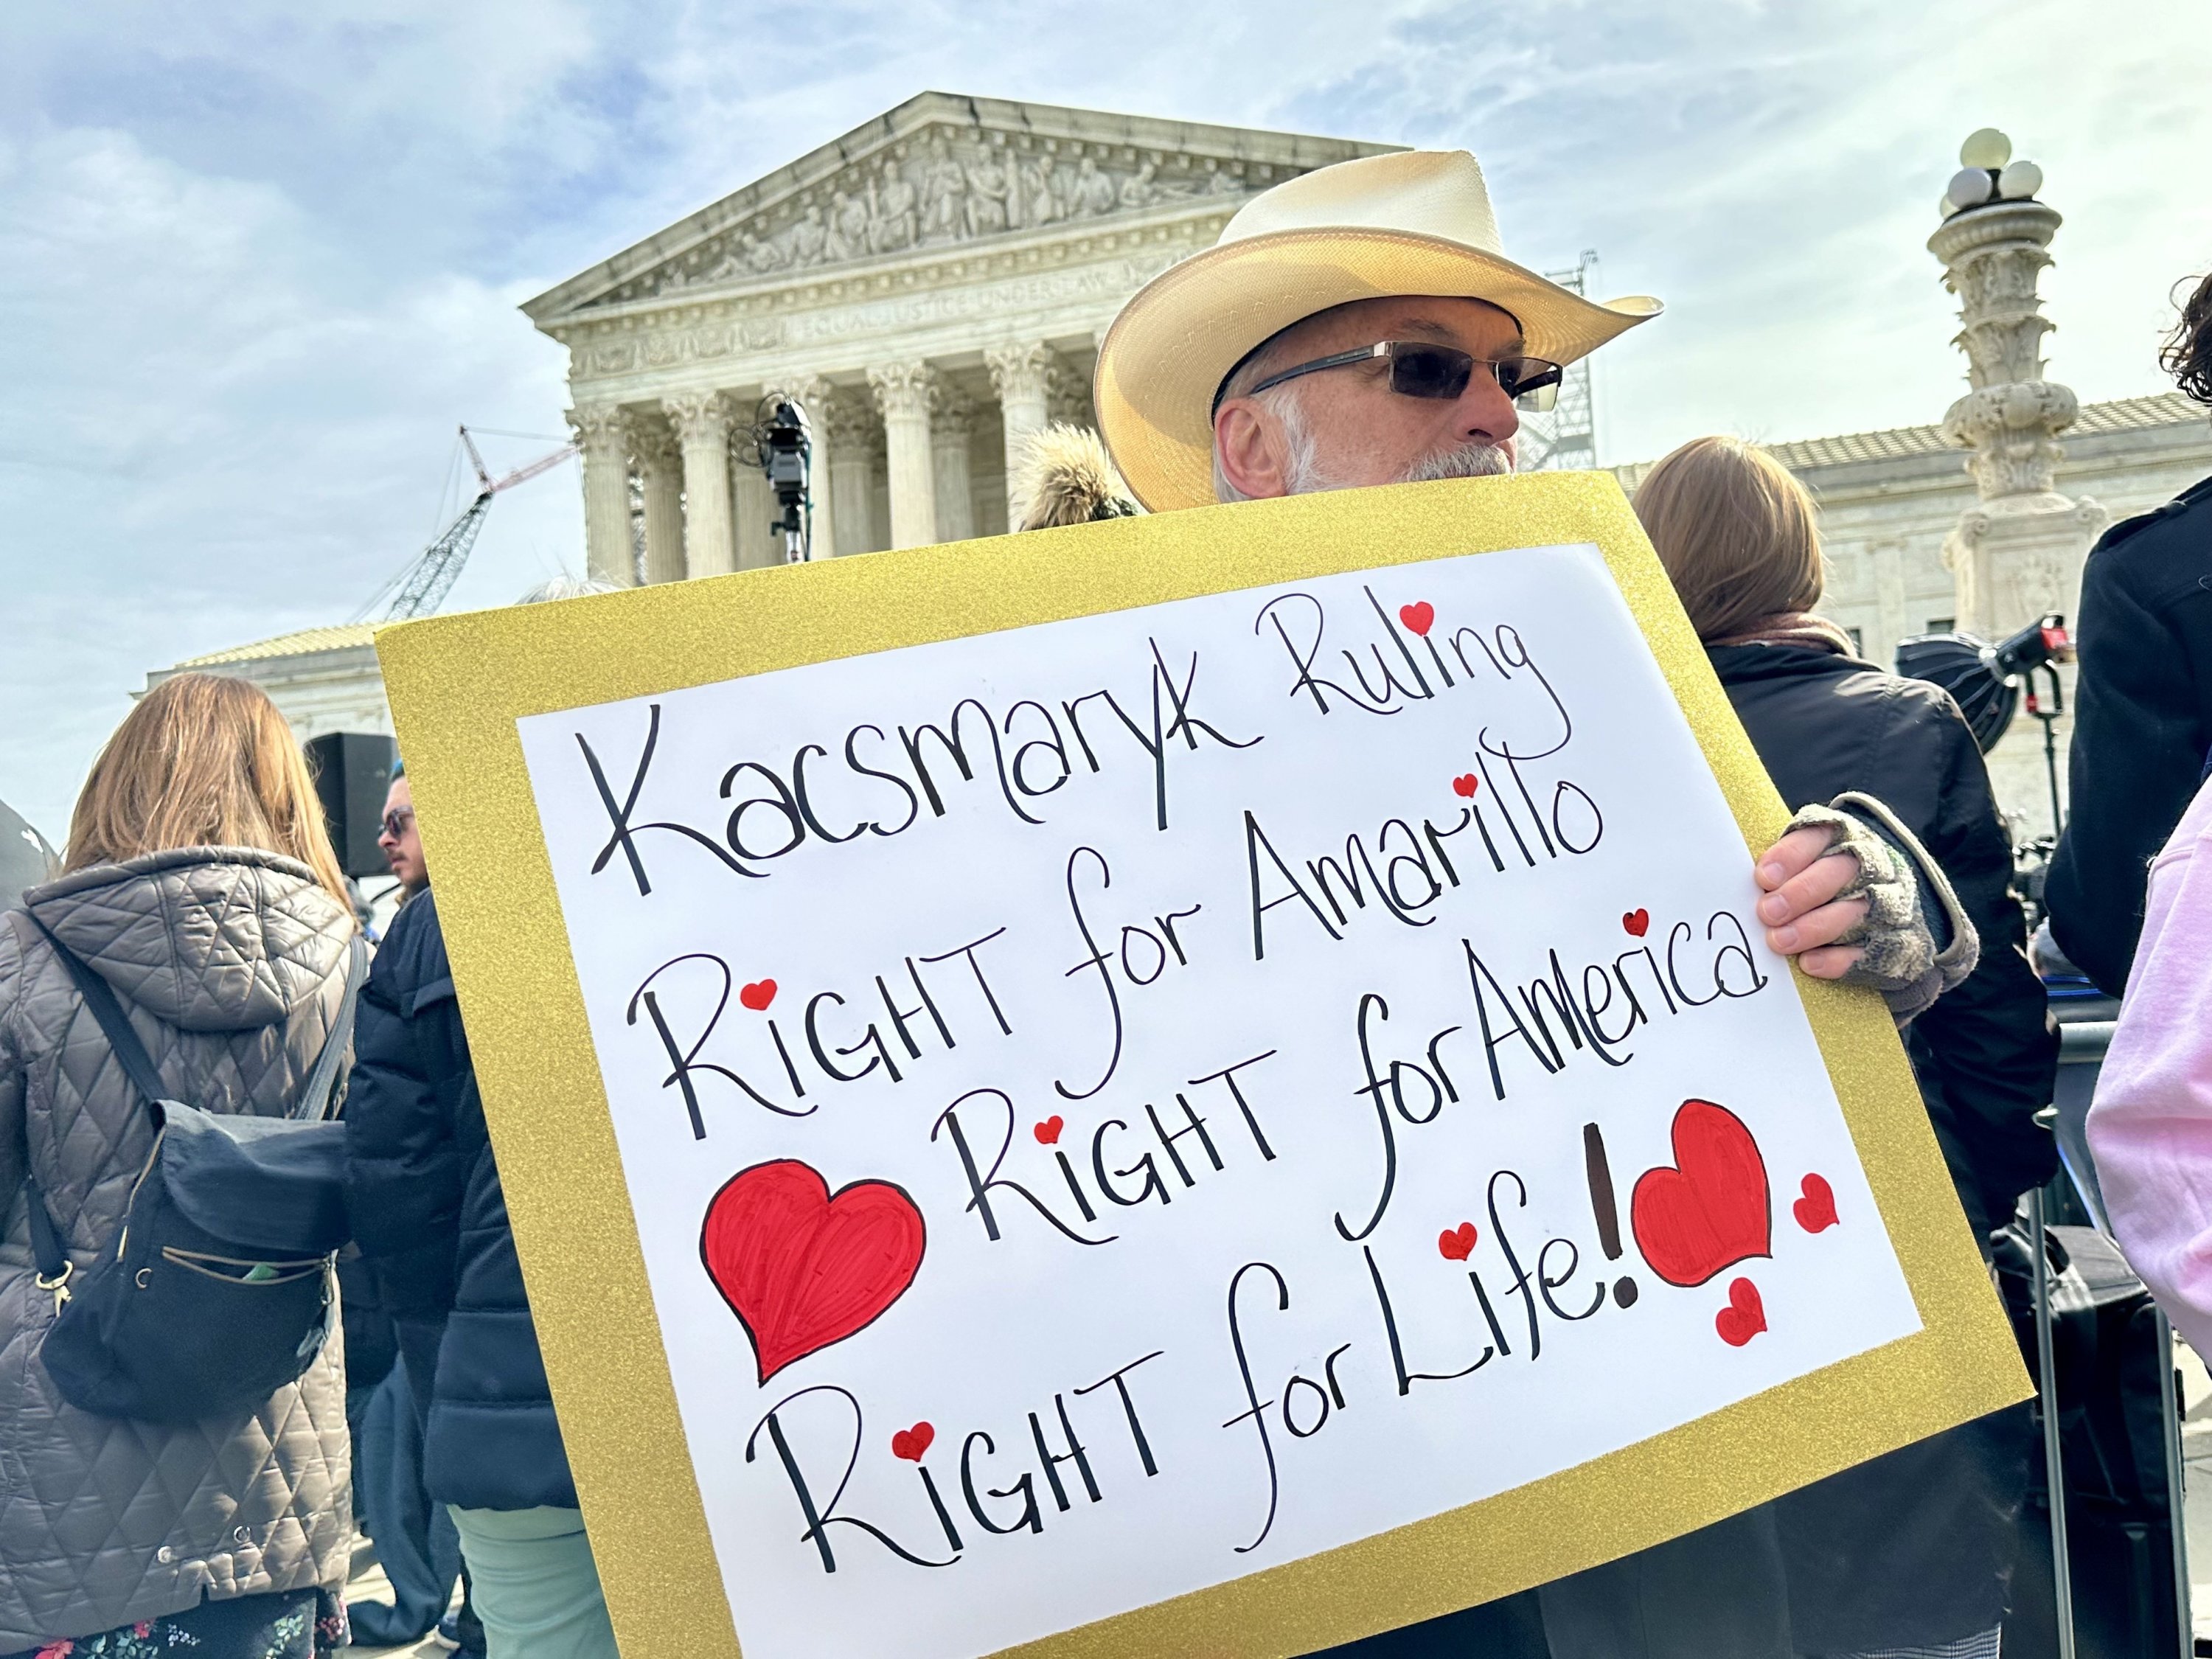 EQUAL JUSTICE UNDER LAW
Kacsmaryk Ruling
RiGHT for Amarillo
RiGHT for America
RiGHT for Life!